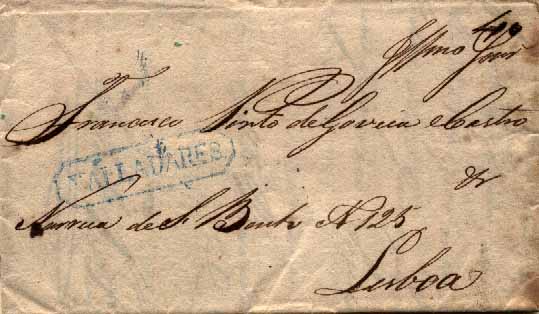 Illmo Snr
Francisco Pinto de Gouvea e Castro
VALLADARES
&
Na rua de S Bento N 125
Lisboa